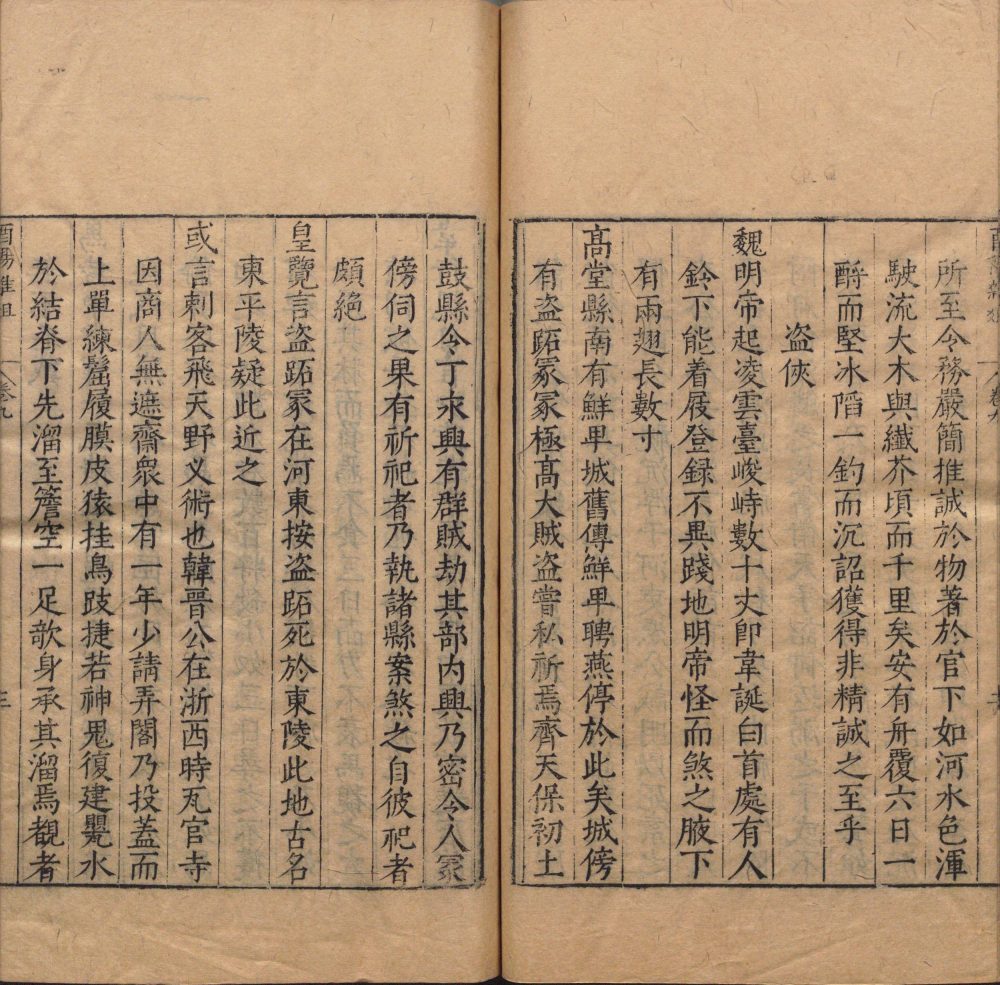 所至今務嚴簡推誠於物著於官下如河水色渾
駛流大木與纖芥頃而千里矣安有舟覆六日一
酹而堅冰陷一釣而沉詔獲得非精誠之至乎
盗俠
魏明帝起凌雲臺峻峙數十丈即韋誕白首處有人
鈴下能着屐登録不異踐地明帝怪而煞之腋下
有兩翅長數寸
髙堂縣南有鮮卑城舊傳鮮卑聘燕停於此矣城傍
有盗跖冢冢極髙大賊盗嘗私祈焉齊天保初土
鼓縣令丁永興有群賊劫其部内興乃密令人冢
傍伺之果有祈祀者乃執諸縣案煞之自彼祀者
頗絶
皇覽言盗跖冢在河東按盗跖死於東陵此地古名
東平陵疑此近之
或言刺客飛天野义術也韓晋公在浙西時瓦官寺
因商人無遮齋衆中有一年少請弄閣乃投蓋而
上單練䰀履膜皮猿挂鳥跂捷若神鬼復建甖水
於結脊下先溜至簷空一足欹身承其溜焉覩者
酉陽雜俎 卷九 三